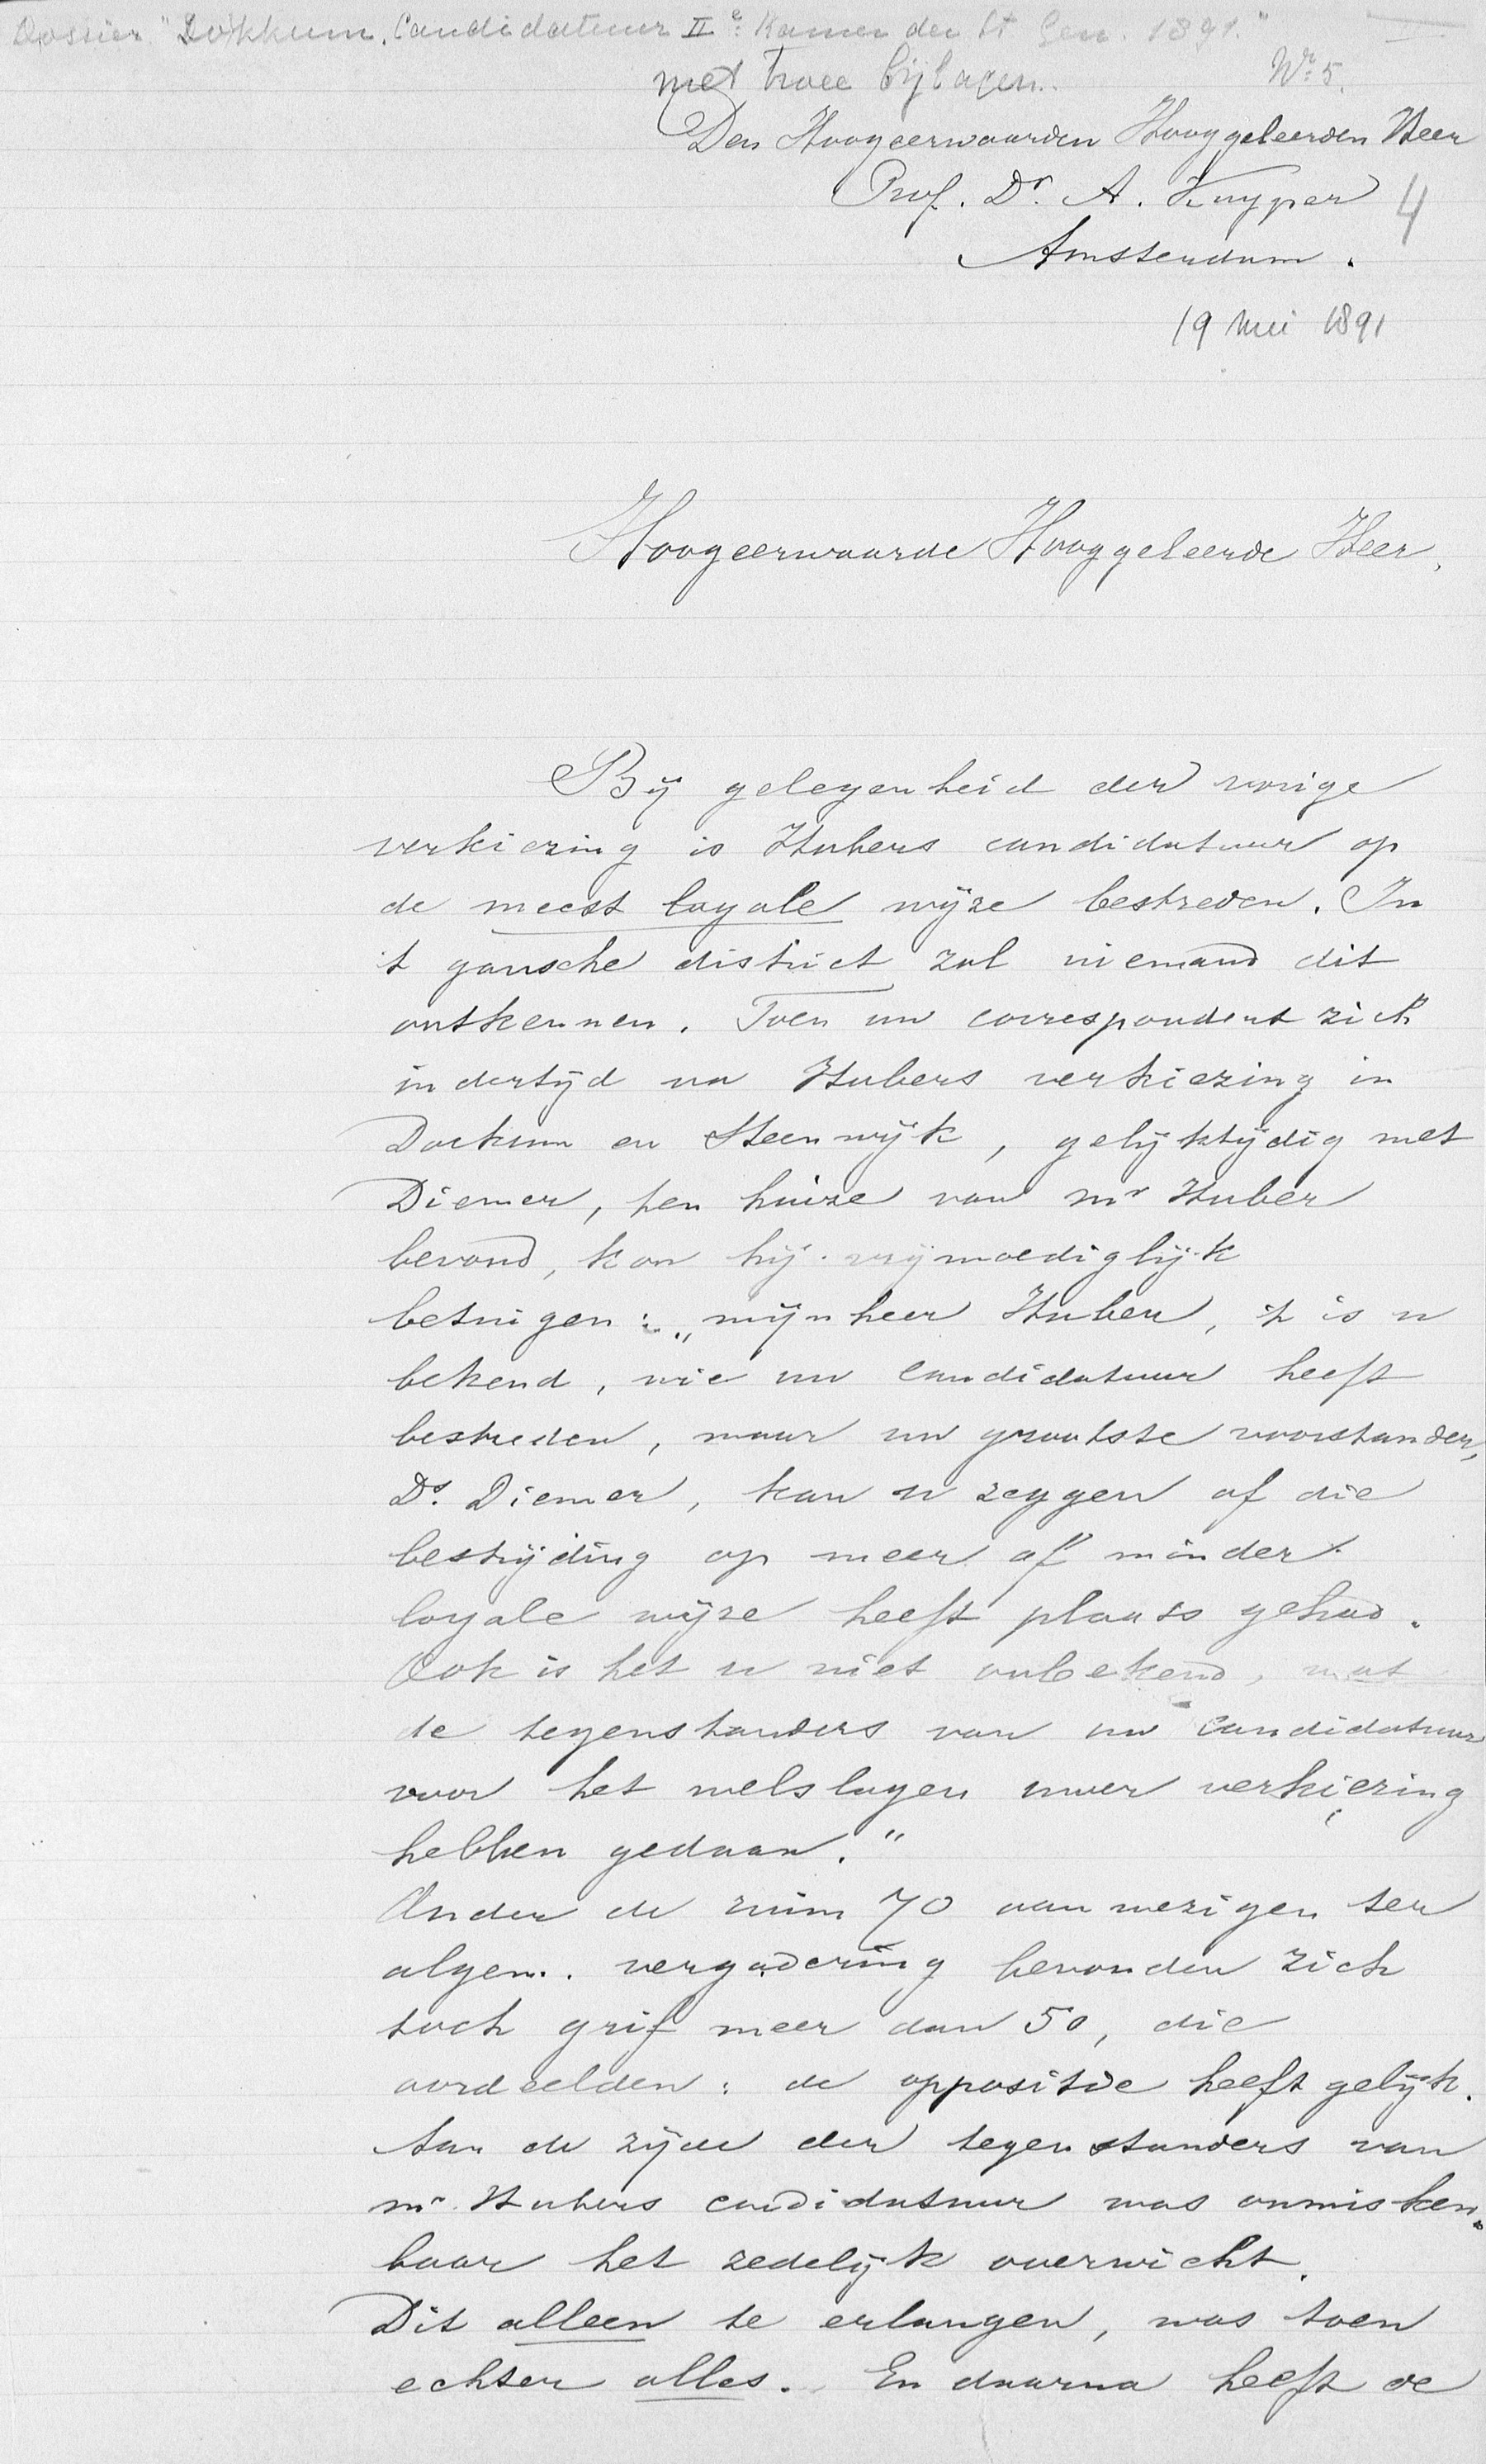 Dossier "Dokkum. Candidatuur IIe Kamer der St Gen. 1891."
met twee bijlagen.
No 5.
Den Hoogeerwaarden Hooggeleerden Heer
Prof. Dr. A. Kuyper
4
Amsterdam.
19 Mei 1891
Hoogeerwaarde Hooggeleerde Heer,
By gelegenheid der vorige
verkiezing is Hubers candidatuur op
de meest loyale wyze bestreden. In
't gansche district zal niemand dit
ontkennen. Toen uw correspondent zich
indertyd na Hubers verkiezing in
Dockum en Steenwyk, gelyktydig met
Diemer, ten huize van mr Huber
bevond, kon hy vrymoediglyk
betuigen: „mynheer Huber, 't is u
bekend, wie uw candidatuur heeft
bestreden, maar uw grootste voorstander,
Ds. Diemer, kan u zeggen of die
bestryding op meer of minder
loyale wyze heeft plaats gehad.
Ook is het u niet onbekend, wat
de tegenstanders van uw candidatuur
voor het welslagen uwer verkiezing
hebben gedaan."
Onder de ruim 70 aanwezigen ter
algem. vergadering bevonden zich
toch grif meer dan 50, die
oordeelden: de oppositie heeft gelyk.
Aan de zyde der tegenstanders van
mr. Hubers candidatuur was onmisken
baar het zedelyk overwicht.
Dit alleen te erlangen, was toen
echter alles. En daarna heeft de